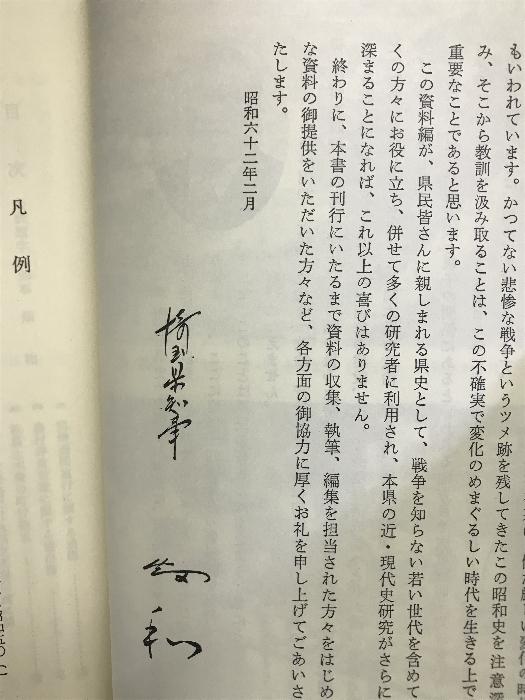 もいわれています。かつてない悲惨な戦争というツメ跡を残してきたこの昭和史を注意深
み、そこから教訓を汲み取ることは、この不確実で変化のめまぐるしい時代を生きる上で
重要なことであると思います。
この資料編が、県民皆さんに親しまれる県史として、戦争を知らない若い世代を含めて
くの方々にお役に立ち、併せて多くの研究者に利用され、本県の近・現代史研究がさらに
深まることになれば、これ以上の喜びはありません。
終わりに、本書の刊行にいたるまで資料の収集、執筆、編集を担当された方々をはじめ
な資料の御提供をいただいた方々など、各方面の御協力に厚くお礼を申し上げてごあいさ
たします。
昭和六十二年二月
埼玉県知事
畑 和
凡例